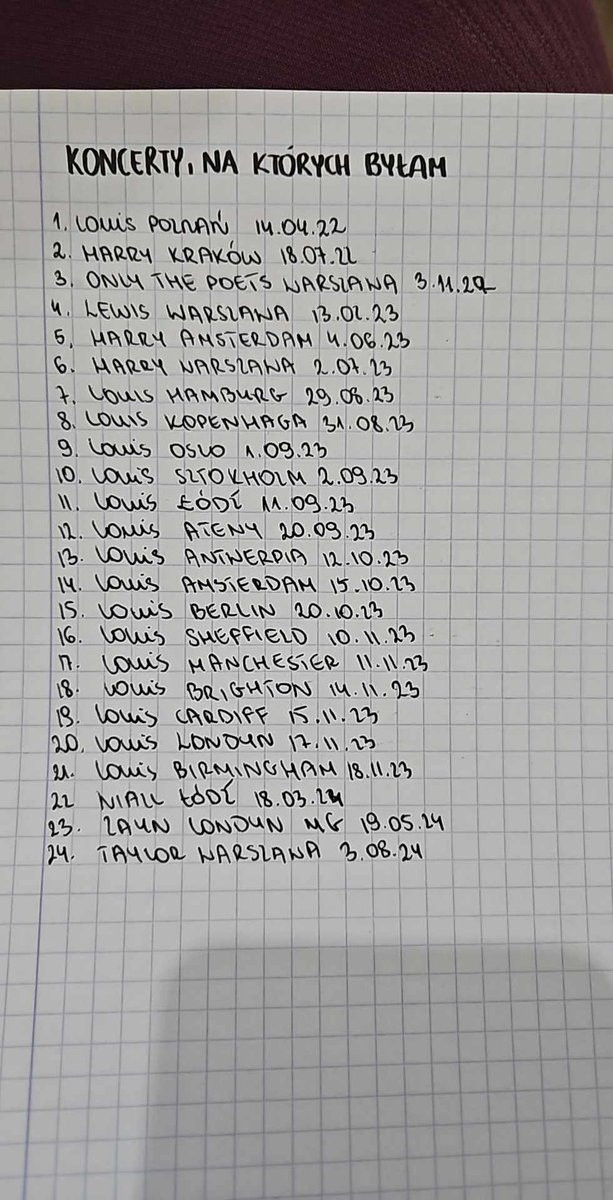 KONCERTY, NA KTÓRYCH BYŁAM
1. Louis POZNAŃ 14.04.22
2. HARRY KRAKÓW 18.07.22
3. ONLY THE POETS WARSZAWA 3.11.22
4. LEWIS WARSZAWA 13.02.23
5. HARRY AMSTERDAM 4.06.23
6. HARRY WARSZAWA 2.07.23
7. Louis HAMBURG 29.08.23
8. Louis KOPENHAGA 31.08.23
9. Louis OSLO 1.09.23
10. Louis SZTOKHOLM 2.09.23
11. Louis ŁÓDŹ 11.09.23
12. Louis ATENY 20.09.23
13. Louis ANTWERPIA 12.10.23
14. Louis AMSTERDAM 15.10.23
15. Louis BERLIN 20.10.23
16. Louis SHEFFIELD 10.11.23
17. Louis MANCHESTER 11.11.23
18. Louis BRIGHTON 14.11.23
19. Louis CARDIFF 15.11.23
20. Louis LONDYN 17.11.23
21. Louis BIRMINGHAM 18.11.23
22 NIALL ŁÓDŹ 18.03.24
23. ZAYN LONDYN MG 19.05.24
24. TAYLOR WARSZAWA 3.08.24